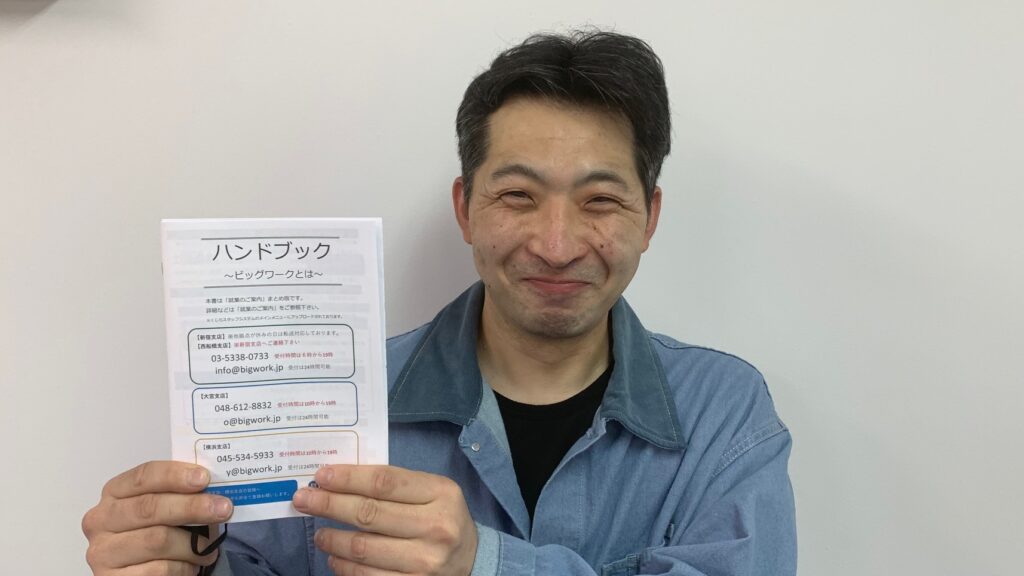 ハンドブック
~ビッグワークとは~
本書は「就業のご案内」まとめ版です。
詳細などは「就業のご案内」をご参照下さい。
【新宿支店】
【西船橋支店】※新宿支店へご連絡下さい
03-5338-0733 受付時間は8時から19時
info@bigwork.jp 受付は24時間可能
【大宮支店】
048-612-8832 受付時間は10時から19時
o@bigwork.jp 受付は24時間可能
【横浜支店】
045-534-5933 受付時間は10時から19時
y@bigwork.jp 受付は24時間